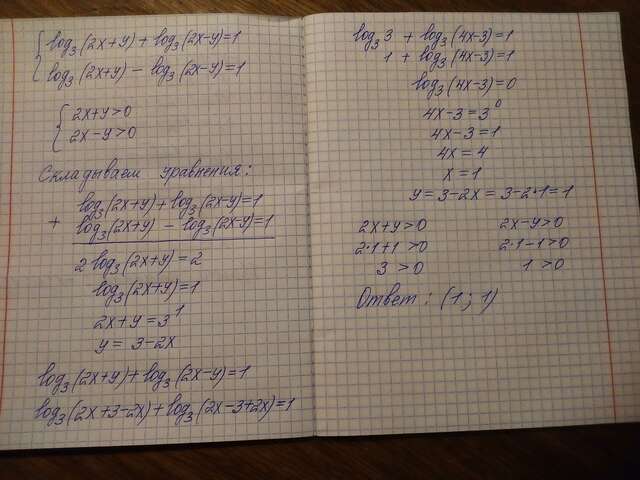 log₃(2x+y) + log₃(2x-y)=1
log₃(2x+y) - log₃(2x-y)=1
2x+y>0
2x-y>0
Складываем уравнения:
log₃(2x+y)+log₃(2x-y)=1
+
log₃(2x+y) - log₃(2x-y)=1
2 log₃(2x+y)=2
log₃(2x+y)=1
2x+y=3¹
y= 3-2x
log₃(2x+y)+log₃(2x-y)=1
log₃(2x+3-2x)+log₃(2x-3+2x)=1
log₃3 + log₃(4x-3)=1
1 + log₃(4x-3)=1
log₃(4x-3)=0
4x-3=3⁰
4x-3=1
4x=4
x=1
y=3-2x=3-2·1=1
2x+y>0 2x-y>0
2·1+1>0 2·1-1>0
3>0 1>0
Ответ: (1; 1)